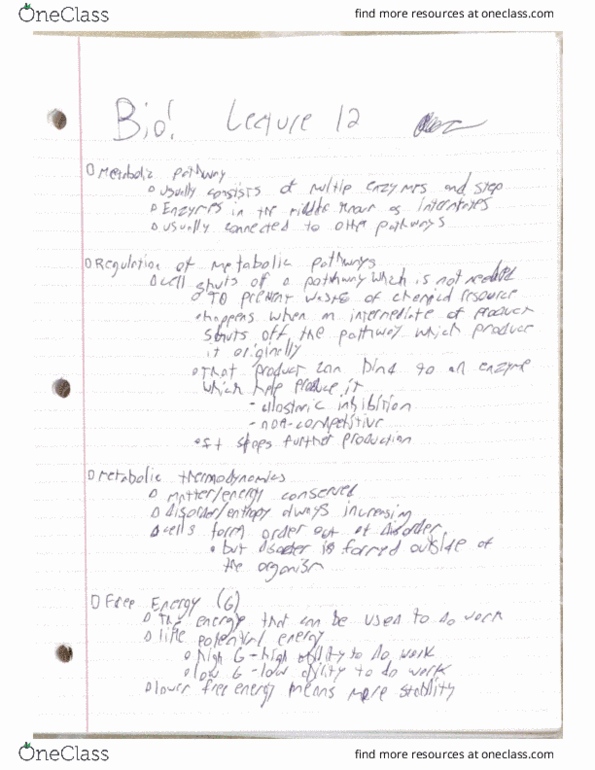 OneClass
find more resources at oneclass.com
Bio! Lecture 12
Metabolic pathway
usually consists of multip enzymes and step
Enzymes in the middle known as
usually connected to other pathways
Regulation of metabolic pathways
cell shuts of a pathway which is not needed
TO prevent waste of chemical resource
happens when an intermediate of product
shuts off the pathway which produce
it originally
That product can bind to an enzyme
which help produce it
- allosteric inhibition
- non-competitive
It stops further production
metabolic thermodynamics
matter/energy conserved
disorder/entropy always increasing
cells form order out of disorder
but disorder is formed outside of
the organism
Free Energy (G)
The energy that can be used to do work
like potential energy
high G - high ability to do work
low G - low ability to do work
lower free energy means more stability
OneClass
find more resources at oneclass.com